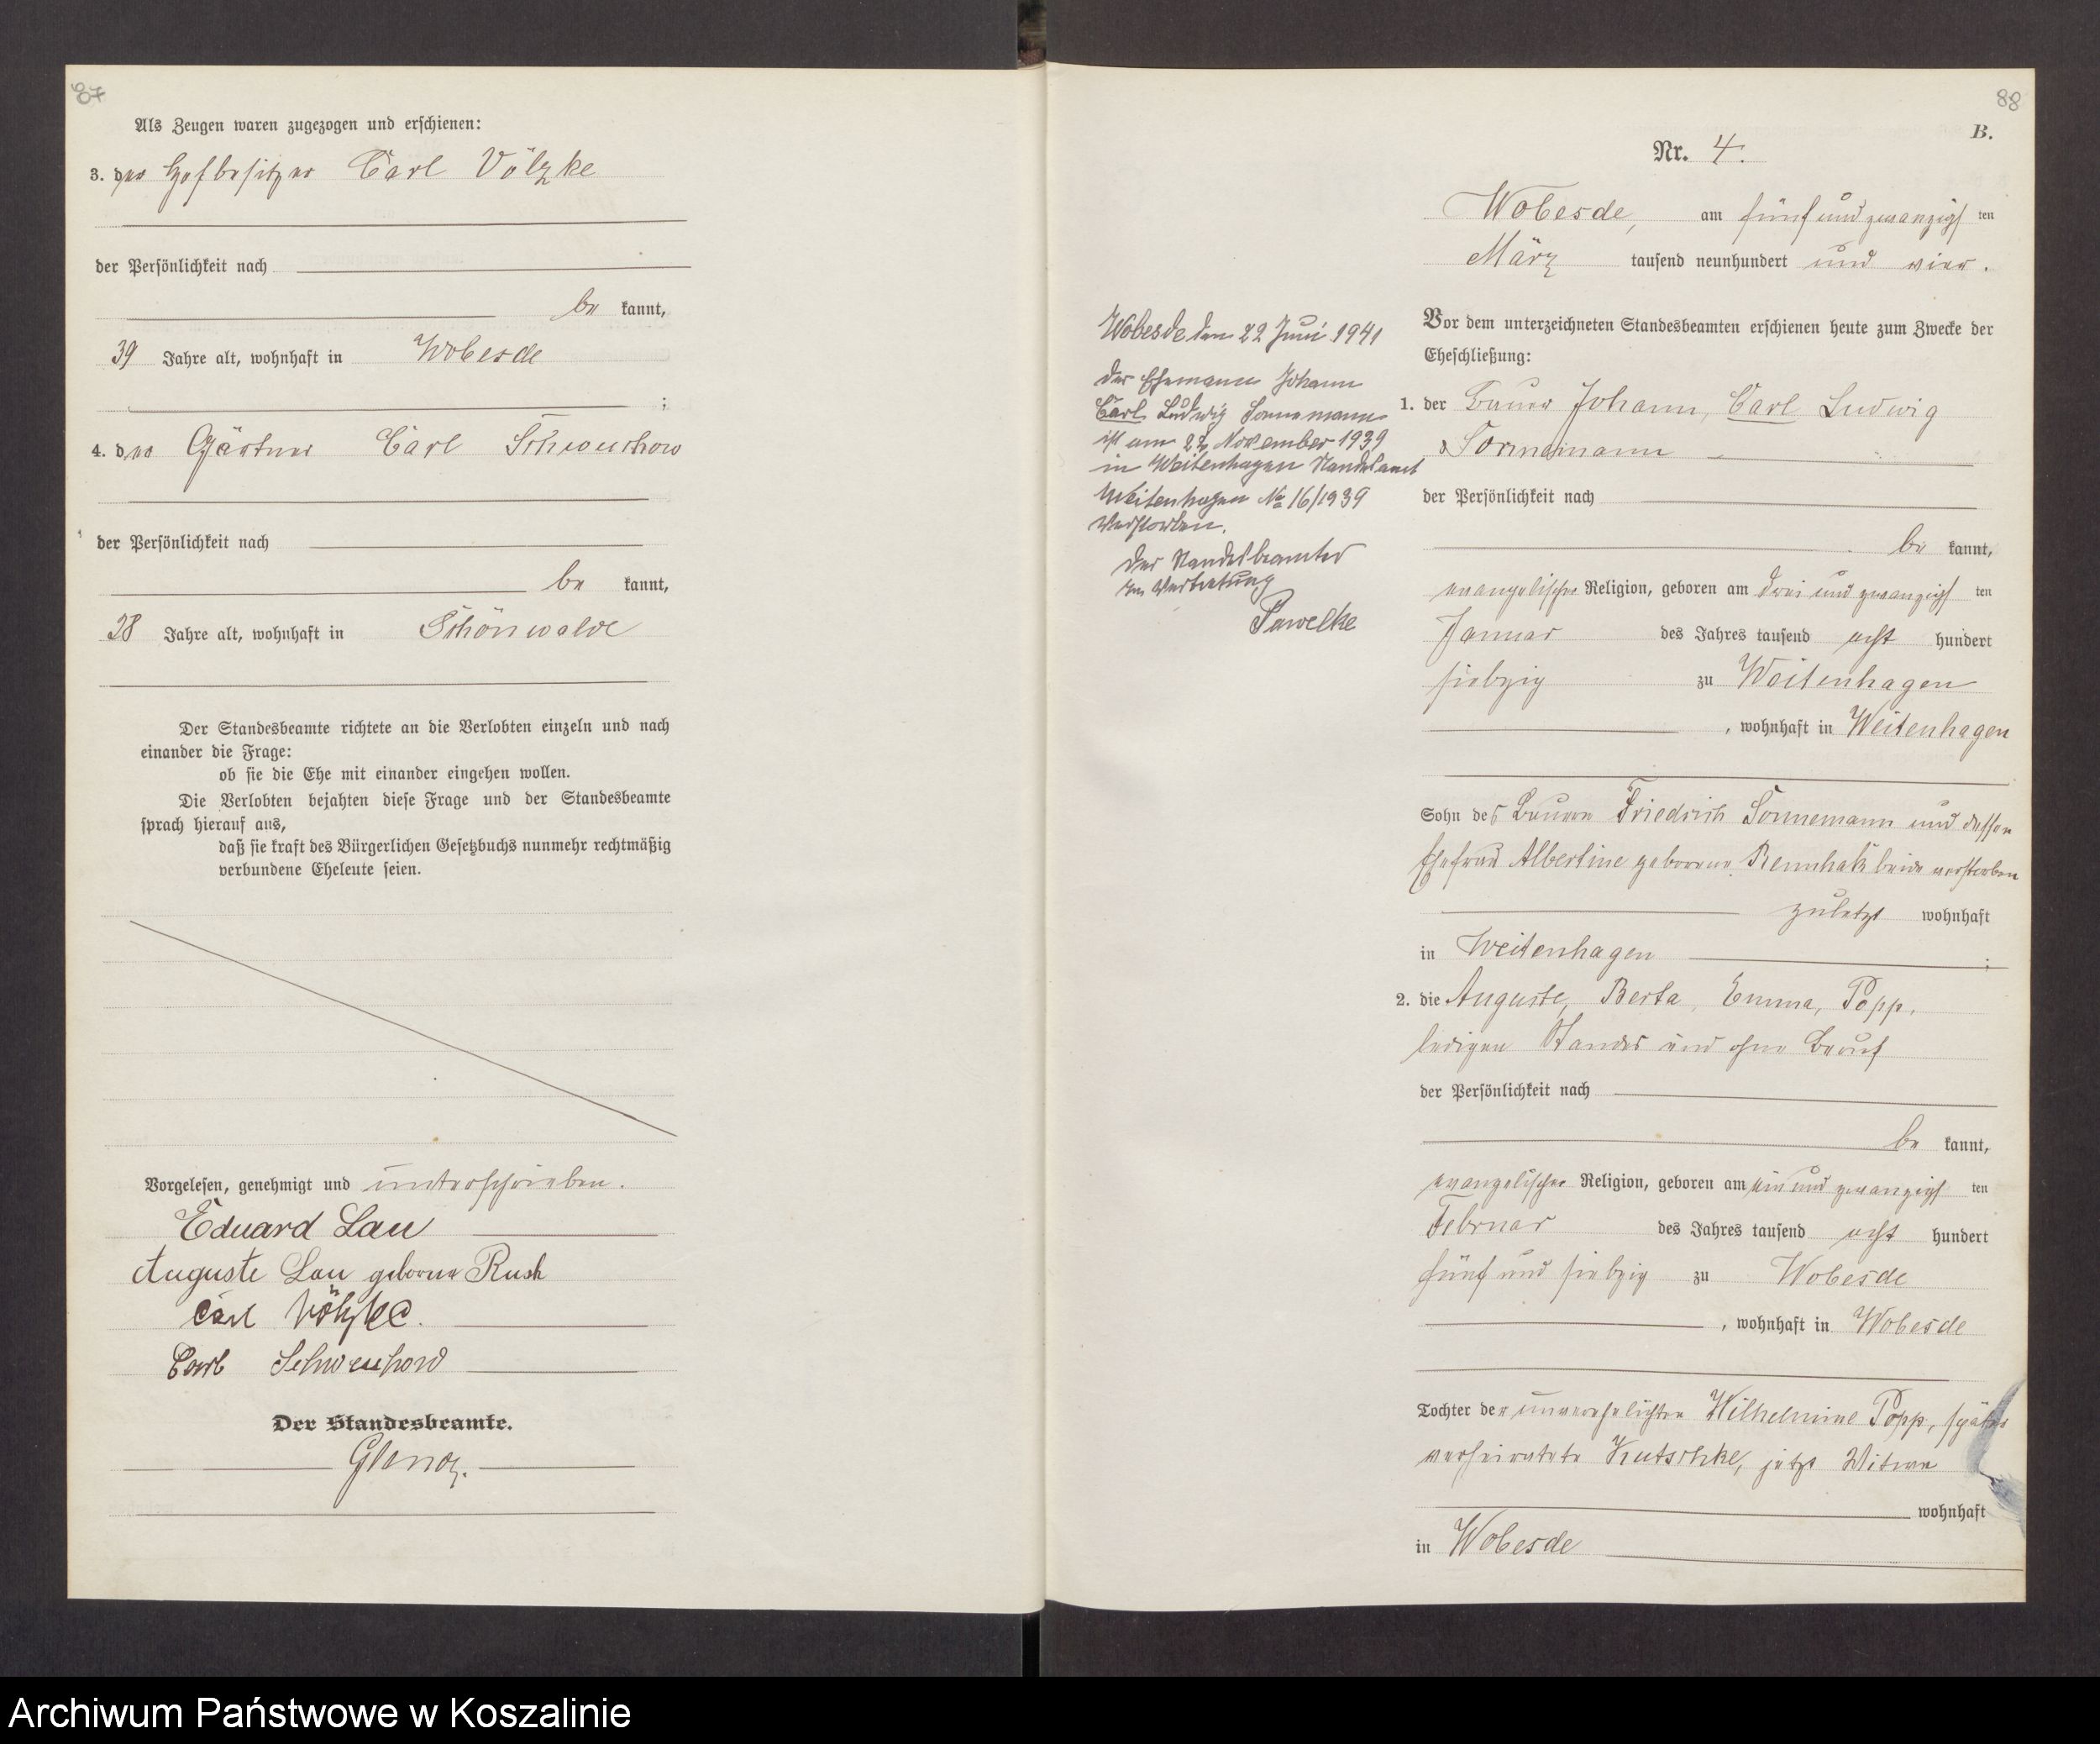 87
Als Zeugen waren zugezogen und erschienen:
3. der Hofbesitzer Carl Völzke
der Persönlichkeit nach
be kannt,
39 Jahre alt, wohnhaft in Wobesde
;
4. der Gärtner Carl Schwuchow
der Persönlichkeit nach
be kannt,
28 Jahre alt, wohnhaft in Schönwalde
Der Standesbeamte richtete an die Verlobten einzeln und nach
einander die Frage:
ob sie die Ehe mit einander eingehen wollen.
Die Verlobten bejahten diese Frage und der Standesbeamte
sprach hierauf aus,
daß sie kraft des Bürgerlichen Gesetzbuchs nunmehr rechtmäßig
verbundene Eheleute seien.
Vorgelesen, genehmigt und unterschrieben.
Eduard Lau
Auguste Lau geborene Rush
Carl Völzke.
Carl Schwuchow
Der Standesbeamte.
88
B.
Nr. 4.
Wobesde, am fünf und zwanzigs ten
März tausend neunhundert und vier.
Vor dem unterzeichneten Standesbeamten erschienen heute zum Zwecke der
Eheschließung:
1. der Bauer Johann, Carl Ludwig
Sonnemann
der Persönlichkeit nach
be kannt,
evangelischer Religion, geboren am drei und zwanzigs ten
Januar des Jahres tausend acht hundert
siebzig zu Weitenhagen
, wohnhaft in Weitenhagen
Sohn des Bauern Friedrich Sonnemann und dessen
Ehefrau Albertine geborene Rennhak beide verstorben
zuletzt wohnhaft
in Weitenhagen ;
2. die Auguste, Berta, Emma, Popp,
ledigen Standes und ohne Beruf
der Persönlichkeit nach
be kannt,
evangelischer Religion, geboren am ein und zwanzigs ten
Februar des Jahres tausend acht hundert
fünf und siebzig zu Wobesde
, wohnhaft in Wobesde
Tochter der unverehelichten Wilhelmine Popp, später
verheiratete Kutschke, jetzt Witwe
wohnhaft
in Wobesde
Wobesde den 22 Juni 1941
Der Ehemann Johann
Carl Ludwig Sonnemann
ist am 22 November 1939
in Weitenhagen Standesamt
Weitenhagen № 16/1939
verstorben.
Der Standesbeamte
In Vertretung
Pawelke
Archiwum Państwowe w Koszalinie